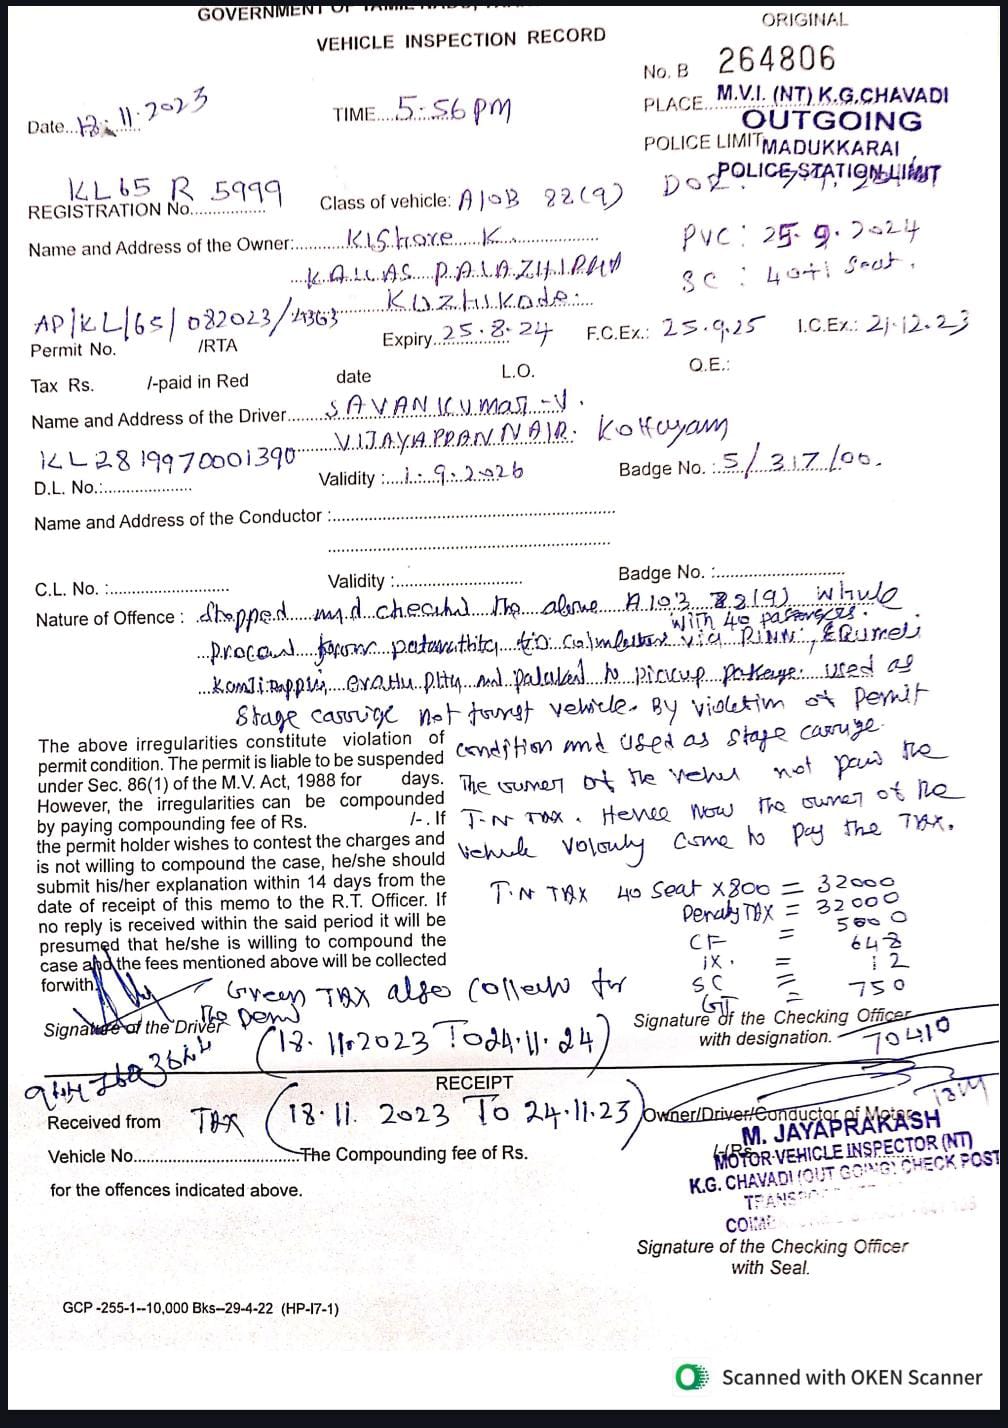 GOVERNMENT OF TAMIL NADU,
ORIGINAL
VEHICLE INSPECTION RECORD
No. B 264806
Date.. 18.11.2023
TIME.... 5:56 PM
PLACE.. M.V.I. (NT) K.G.CHAVADI
OUTGOING
POLICE LIMIT MADUKKARAI
POLICE STATION LIMIT
KL65 R 5999
REGISTRATION No.
Class of vehicle: A103 82(9)
DOR:
Name and Address of the Owner: Kishore K
PVC: 25.9.2024
KAILAS PALAZHIPAD
SC: 40+1 Seat.
Kozhikode.
AP/KL/65/082023/
Permit No. /RTA
Expiry. 25.8.24
F.C.Ex.: 25.9.25
I.C.Ex.: 21.12.23
Tax Rs. /-paid in Red date L.O. Q.E.:
Name and Address of the Driver SAVANKUMAR -V.
VIJAYAPPAN NAIR. Kottayam
KL28 19970001390
D.L. No.:
Validity : 1.9.2026
Badge No. : 5/317/00.
Name and Address of the Conductor :
C.L. No. :
Validity :
Badge No. :
Nature of Offence : Stopped and checked the above A103 82(9) vehicle
with 40 passengers.
from to Coimbatore via
and Palakad to pickup package. used as
Stage carriage not tourist vehicle. By violation of Permit
condition and used as stage carriage.
The owner of the vehicle not paid the
T.N TAX. Hence Now the owner of the
vehicle come to pay the TAX.
The above irregularities constitute violation of
permit condition. The permit is liable to be suspended
under Sec. 86(1) of the M.V. Act, 1988 for days.
However, the irregularities can be compounded
by paying compounding fee of Rs. /-. If
the permit holder wishes to contest the charges and
is not willing to compound the case, he/she should
submit his/her explanation within 14 days from the
date of receipt of this memo to the R.T. Officer. If
no reply is received within the said period it will be
presumed that he/she is willing to compound the
case and the fees mentioned above will be collected
forwith.
T.N TAX 40 Seat X 800 = 32000
Penalty TAX = 32000
CF = 5000
IX. = 648
SC = 12
GT = 750
Green TAX also Collected for
the Period
(18.11.2023 To 24.11.24)
Signature of the Driver
Signature of the Checking Officer
with designation.
70410
RECEIPT
Received from TAX (18.11.2023 To 24.11.23) Owner/Driver/Conductor of Motor
Vehicle No. The Compounding fee of Rs.
for the offences indicated above.
M. JAYAPRAKASH
MOTOR VEHICLE INSPECTOR (NT)
K.G. CHAVADI (OUT GOING) CHECK POST
Signature of the Checking Officer
with Seal.
GCP -255-1--10,000 Bks--29-4-22 (HP-I7-1)
Scanned with OKEN Scanner